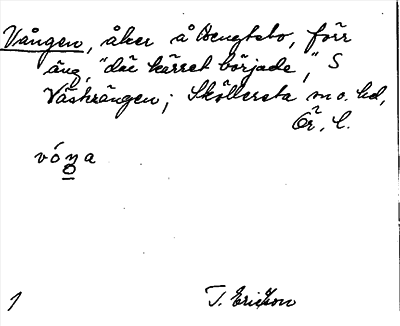 Vången, åker å Bengtsbo, förr
äng, "där kärret började," S
Västerängen; Sköllersta sn o. hd,
Ör. l.
vóŋa
1
T. Ericson